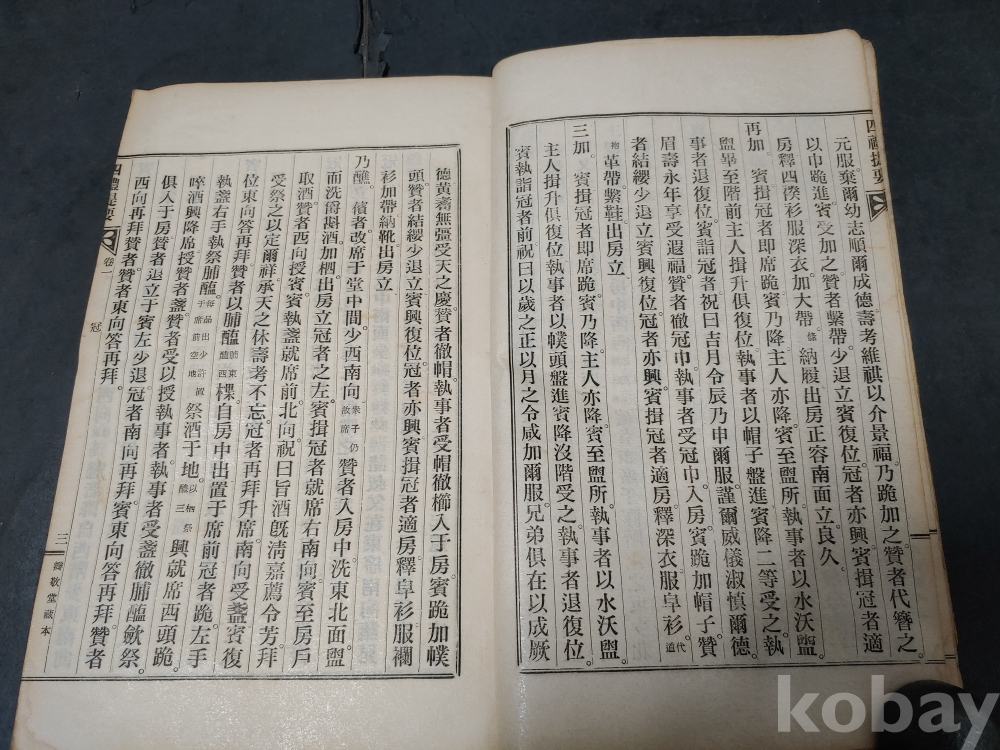 四禮提要
元服。棄爾幼志順爾成德壽考維祺以介景福。乃跪加之贊者代簪之。
以巾跪進賓受加之贊者繫帶。少退立賓復位。冠者亦興。賓揖冠者適
房釋四䙆衫服深衣加大帶納履出房正容南面立良久。
再加。賓揖冠者即席跪賓乃降主人亦降。賓至盥所。執事者以水沃盥
盥畢至階前主人揖升俱復位執事者以帽子盤進賓降二等受之。執
事者退復位。賓詣冠者祝曰吉月令辰乃申爾服謹爾威儀淑慎爾德。
眉壽永年享受遐福。贊者徹冠巾。執事者受冠巾。入房。賓跪加帽子贊
者結纓少退立賓興復位。冠者亦興。賓揖冠者適房。釋深衣服皁衫。代道
袍革帶繫鞋出房立。
三加。賓揖冠者即席跪。賓乃降主人亦降。賓至盥所。執事者以水沃盥
主人揖升俱復位執事者以幞頭盤進賓降沒階受之。執事者退復位。
賓執詣冠者前祝曰以歲之正以月之令咸加爾服。兄弟俱在以成厥
德黃耇無彊受天之慶。贊者徹帽。執事者受帽徹櫛入于房賓跪加幞
頭。贊者結纓少退立賓興復位。冠者亦興賓揖冠者適房釋皁衫服襴
衫加帶納靴出房立。
乃醮。儐者改席于堂中間少西南向朱子仍故席贊者入房中。洗東北面。盥
而洗爵斟酒加柶。出房立冠者之左。賓揖冠者就席右南向。賓至房戶
取酒。贊者西向授賓。賓執盞就席前。北向祝曰旨酒旣清嘉薦令芳。拜
受祭之以定爾祥承天之休壽考不忘。冠者再拜升席。南向受盞。賓復
位東向答再拜。贊者以脯醢脯東醢西楪。自房中出置于席前冠者跪。左手
執盞右手執祭脯醢。每品出少許置于席前空地祭酒于地。以柶祭醴三興就席西頭跪
啐酒興降席授贊者盞。贊者受以授執事者。執事者受盞徹脯醢歛祭。
俱入于房贊者退立于賓左少退。冠者南向再拜。賓東向答再拜。贊者
西向再拜贊者。贊者東向答再拜。
四禮提要
卷一
冠
三
敬堂藏本
kobay